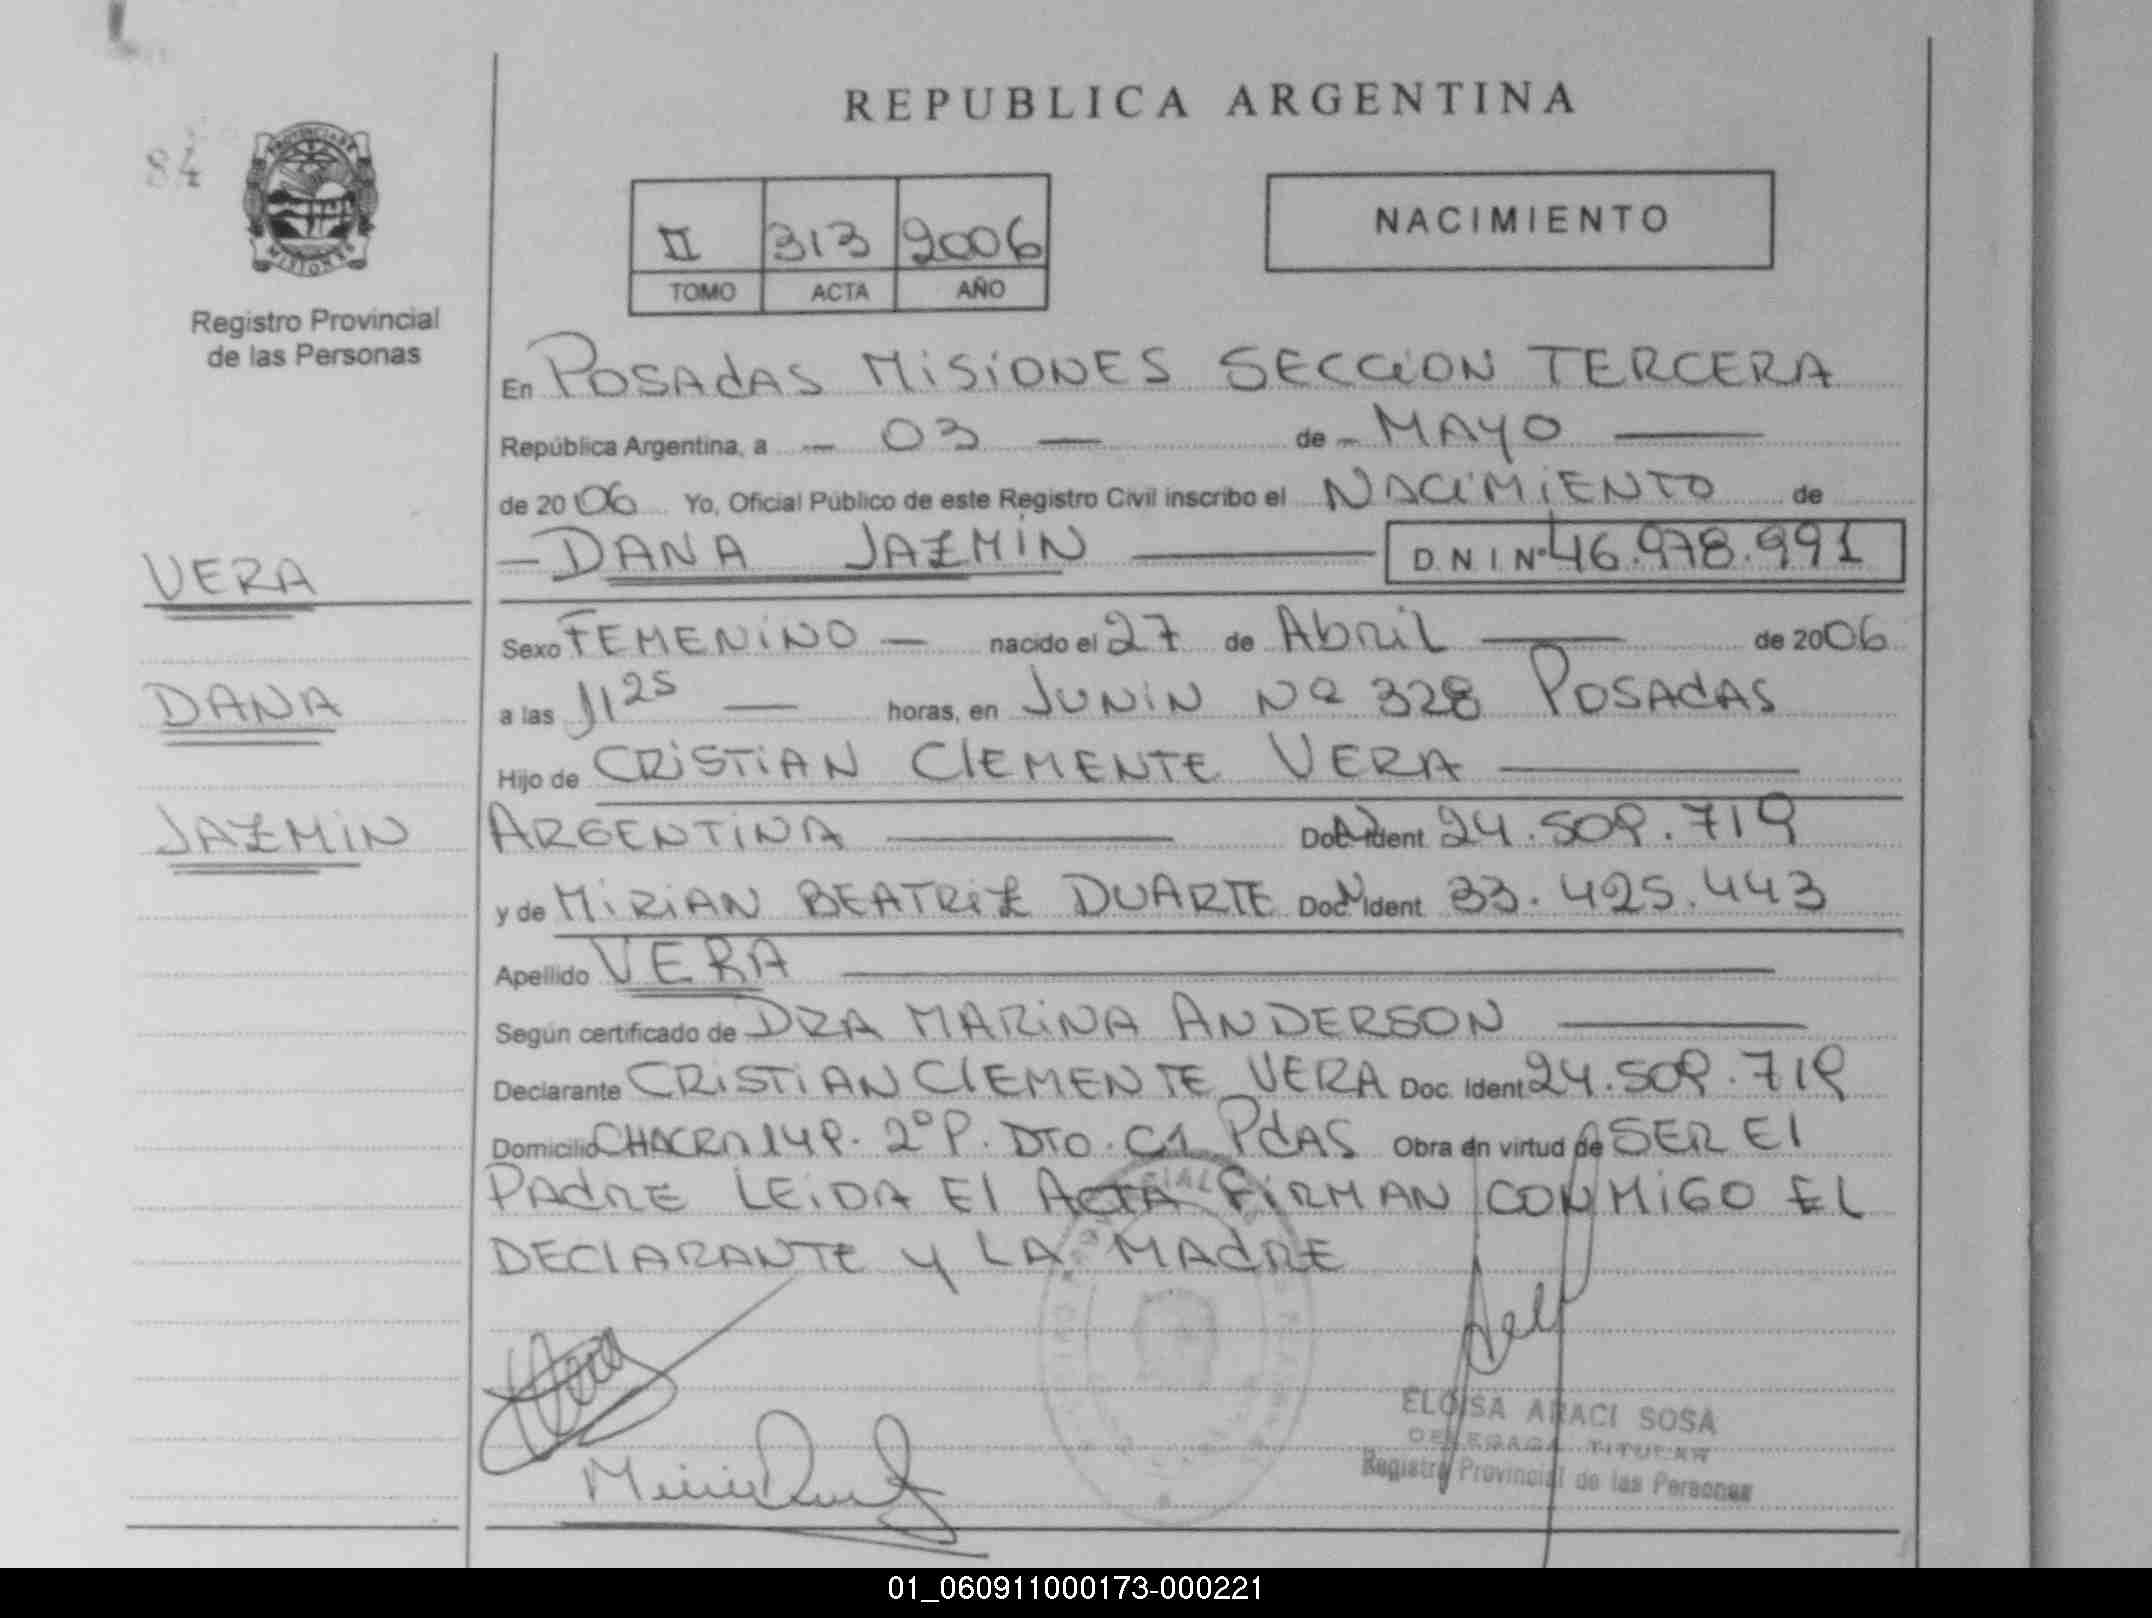 REPUBLICA ARGENTINA
84
PROVINCIA DE
MISIONES
Registro Provincial
de las Personas
II 313 2006
TOMO ACTA AÑO
NACIMIENTO
En POSADAS MISIONES SECCION TERCERA
República Argentina, a 03 de MAYO
de 2006 Yo, Oficial Público de este Registro Civil inscribo el NACIMIENTO de
DANA JAZMIN D N I Nº 46.978.991
VERA
DANA
JAZMIN
Sexo FEMENINO nacido el 27 de Abril de 2006
a las 11 25 horas, en JUNIN Nº 328 POSADAS
Hijo de CRISTIAN CLEMENTE VERA
ARGENTINA Doc Ident 24.509.719
y de MIRIAN BEATRIZ DUARTE Doc Ident 33.425.443
Apellido VERA
Según certificado de DRA MARINA ANDERSON
Declarante CRISTIAN CLEMENTE VERA Doc. Ident 24.509.719
Domicilio CHACRA 149. 2º P. DTO. C1 PdAS Obra en virtud de SER El
PADRE LEIDA El ACTA FIRMAN CONMIGO EL
DECLARANTE Y LA MADRE
ELOISA ARACI SOSA
DELEGADA TITULAR
Registro Provincial de las Personas
01_060911000173-000221